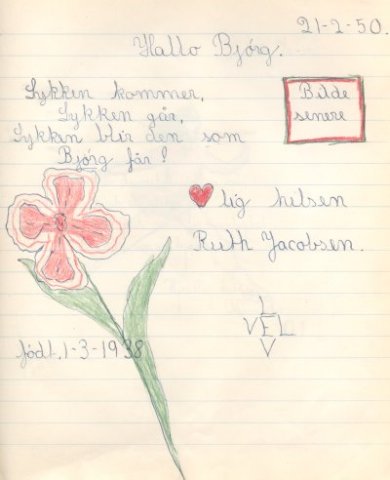 21-2-50.
Hallo Bjørg.
Lykken kommer,
Lykken går,
Lykken blir den som
Bjørg får!
Bilde
senere
lig hilsen
Ruth Jacobsen.
L
VEL
V
født. 1-3-1938